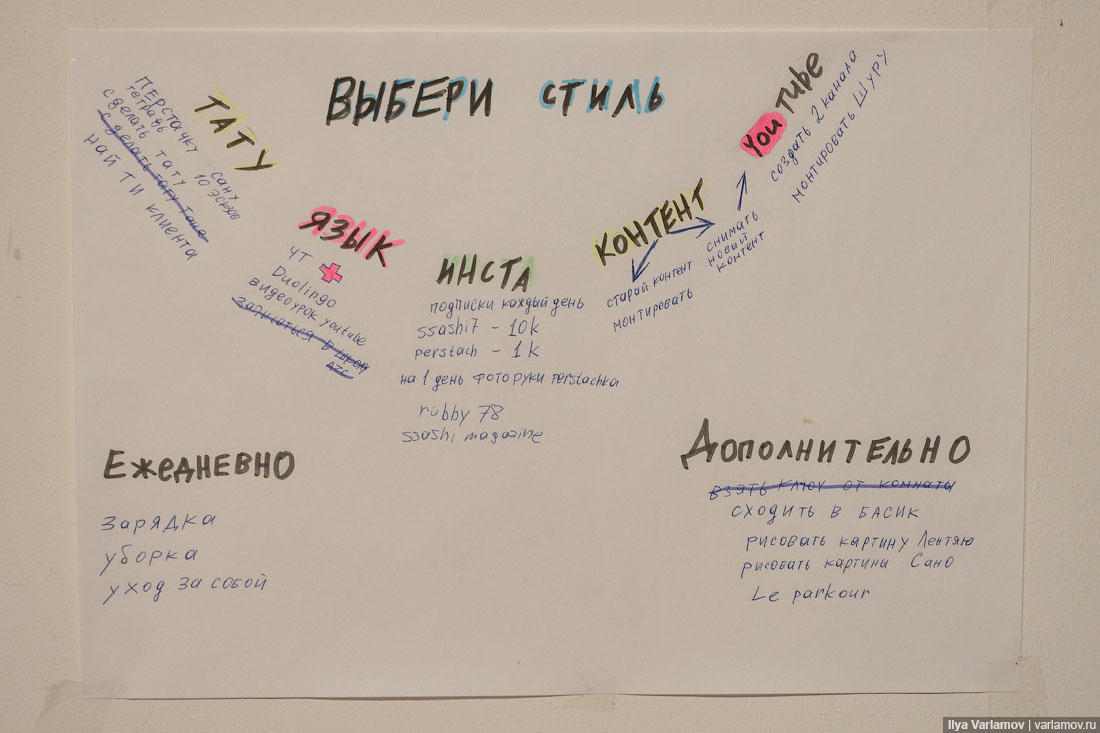 ВЫБЕРИ СТИЛЬ
ТАТУ
ПЕРСТАЧКУ
тетрадь
сделать тату сану
10 эскзов
сделать тату Тане
НАЙТИ КЛИЕНТА
ЯЗЫК
ЧТ
Duolingo
видеоурок youtube
записаться в
ИНСТА
подписки каждый день
ssashi7 - 10k
perstach - 1k
на 1 день фото руки perstachka
rubby 78
ssashi magazine
КОНТЕНТ
старай контент
монтировать
снимать
новый
контент
YouTube
создать 2 канала
монтировать ШУРУ
Ежедневно
зарядка
уборка
уход за собой
Дополнительно
взять ключ от комнаты
сходить в БАСИК
рисовать картину Лентяю
рисовать картины Сано
Le parkour
Ilya Varlamov | varlamov.ru